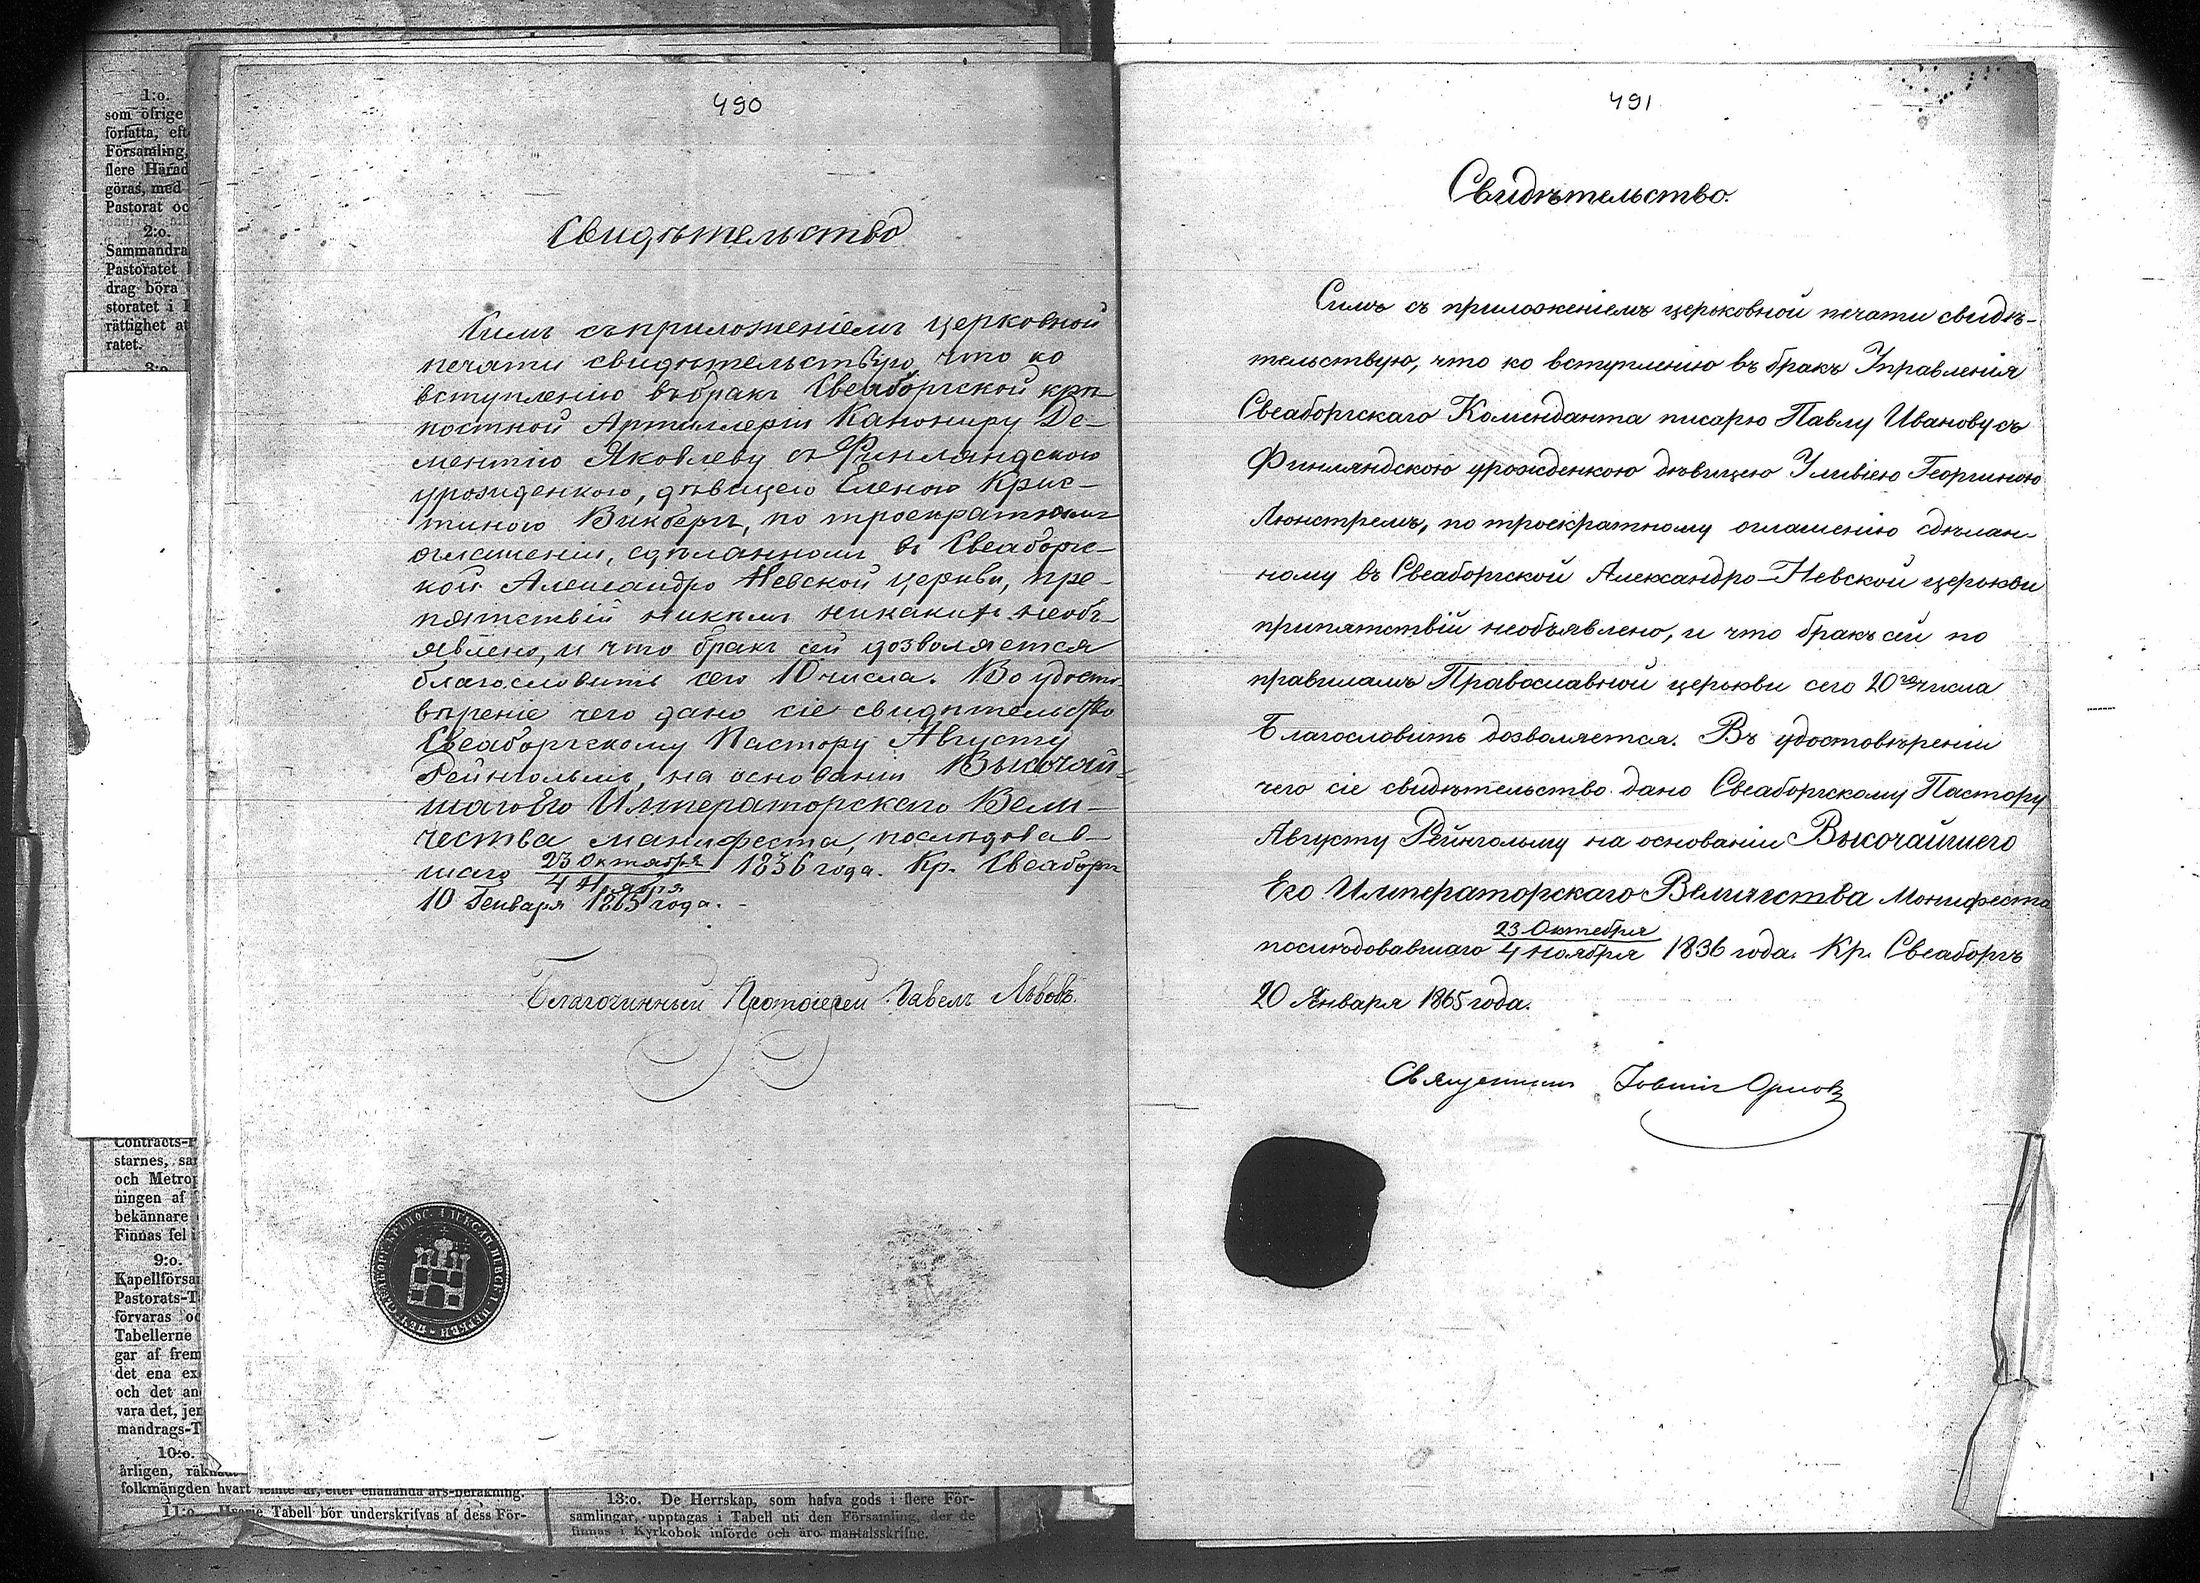 1:o.
som öfrige
författa, eft
Församling,
flere Härad
göras, med
Pastorat oc
2:o.
Sammandra
Pastoratet
drag böra
storatet i
rättighet at
ratet.
3:o
Contracts-P
starnes, sa
och Metrop
ningen af
bekännare
Finnas fel i
9:o.
Kapellförsa
Pastorats-T
förvaras oc
Tabellerne
gar af frem
det ena ex
och det an
vara det, jer
mandrags-T
10:o.
årligen, räkn
folkmängden hvart femte år, efter enahanda års-beräkning.
11:o. Hvarje Tabell bör underskrifvas af dess För-
13:o. De Herrskap, som hafva gods i flere För-
samlingar, upptagas i Tabell uti den Församling, der de
finnas i Kyrkobok införde och äro mantalsskrifne.
490
Свидѣтельство
Симъ съ приложеніемъ церковной
печати свидѣтельствую, что ко
вступленію въ бракъ Свеаборгской крѣ-
постной Артиллеріи Канониру Де-
ментію Яковлеву съ Финляндскою
урожденкою, дѣвицею Еленою Крис-
тиною Викбергъ, по троекратномъ
оглашеніи, сдѣланномъ въ Свеаборгс-
кой Александро Невской церкви, пре-
пятствій никѣмъ никакихъ необъ-
явлено, и что бракъ сей дозволяется
благословить сего 10 числа. Во удосто-
вѣреніе чего дано сіе свидѣтельство
Свеаборгскому Пастору Августу
Рейнгольмъ, на основаніи Высочай-
шаго Его Императорскаго Вели-
чества манифеста, послѣдовав-
шаго 23 Октября / 4 Ноября 1836 года. Кр. Свеаборгъ
10 Генваря 1865 года.
Благочинный Протоіерей Павелъ Львовъ.
ПЕЧ. СВЕАБОРГ. КРѢПОС. АЛЕКСАН. НЕВСК. ЦЕРКВИ
491
Свидѣтельство.
Симъ съ приложеніемъ церьковной печати свидѣ-
тельствую, что ко вступленію въ бракъ Управленія
Свеаборгскаго Коменданта писарю Павлу Иванову съ
Финляндскою урожденкою дѣвицею Уливіею Георгиною
Люнстремъ, по троекратному оглашенію сдѣлан-
ному въ Свеаборгской Александро-Невской церькви
припятствій необъявлено, и что бракъ сей по
правиламъ Православной церькви сего 20го числа
Благословить дозволяется. Въ удостовѣреніи
чего сіе свидѣтельство дано Свеаборгскому Пастору
Августу Рейнгольму на основаніи Высочайшего
Его Императорскаго Величества Монифеста
послѣдовавшаго 23 Октебря / 4 Ноября 1836 года. Кр. Свеаборгъ
20 Января 1865 года.
Священникъ Іоаннъ Орловъ